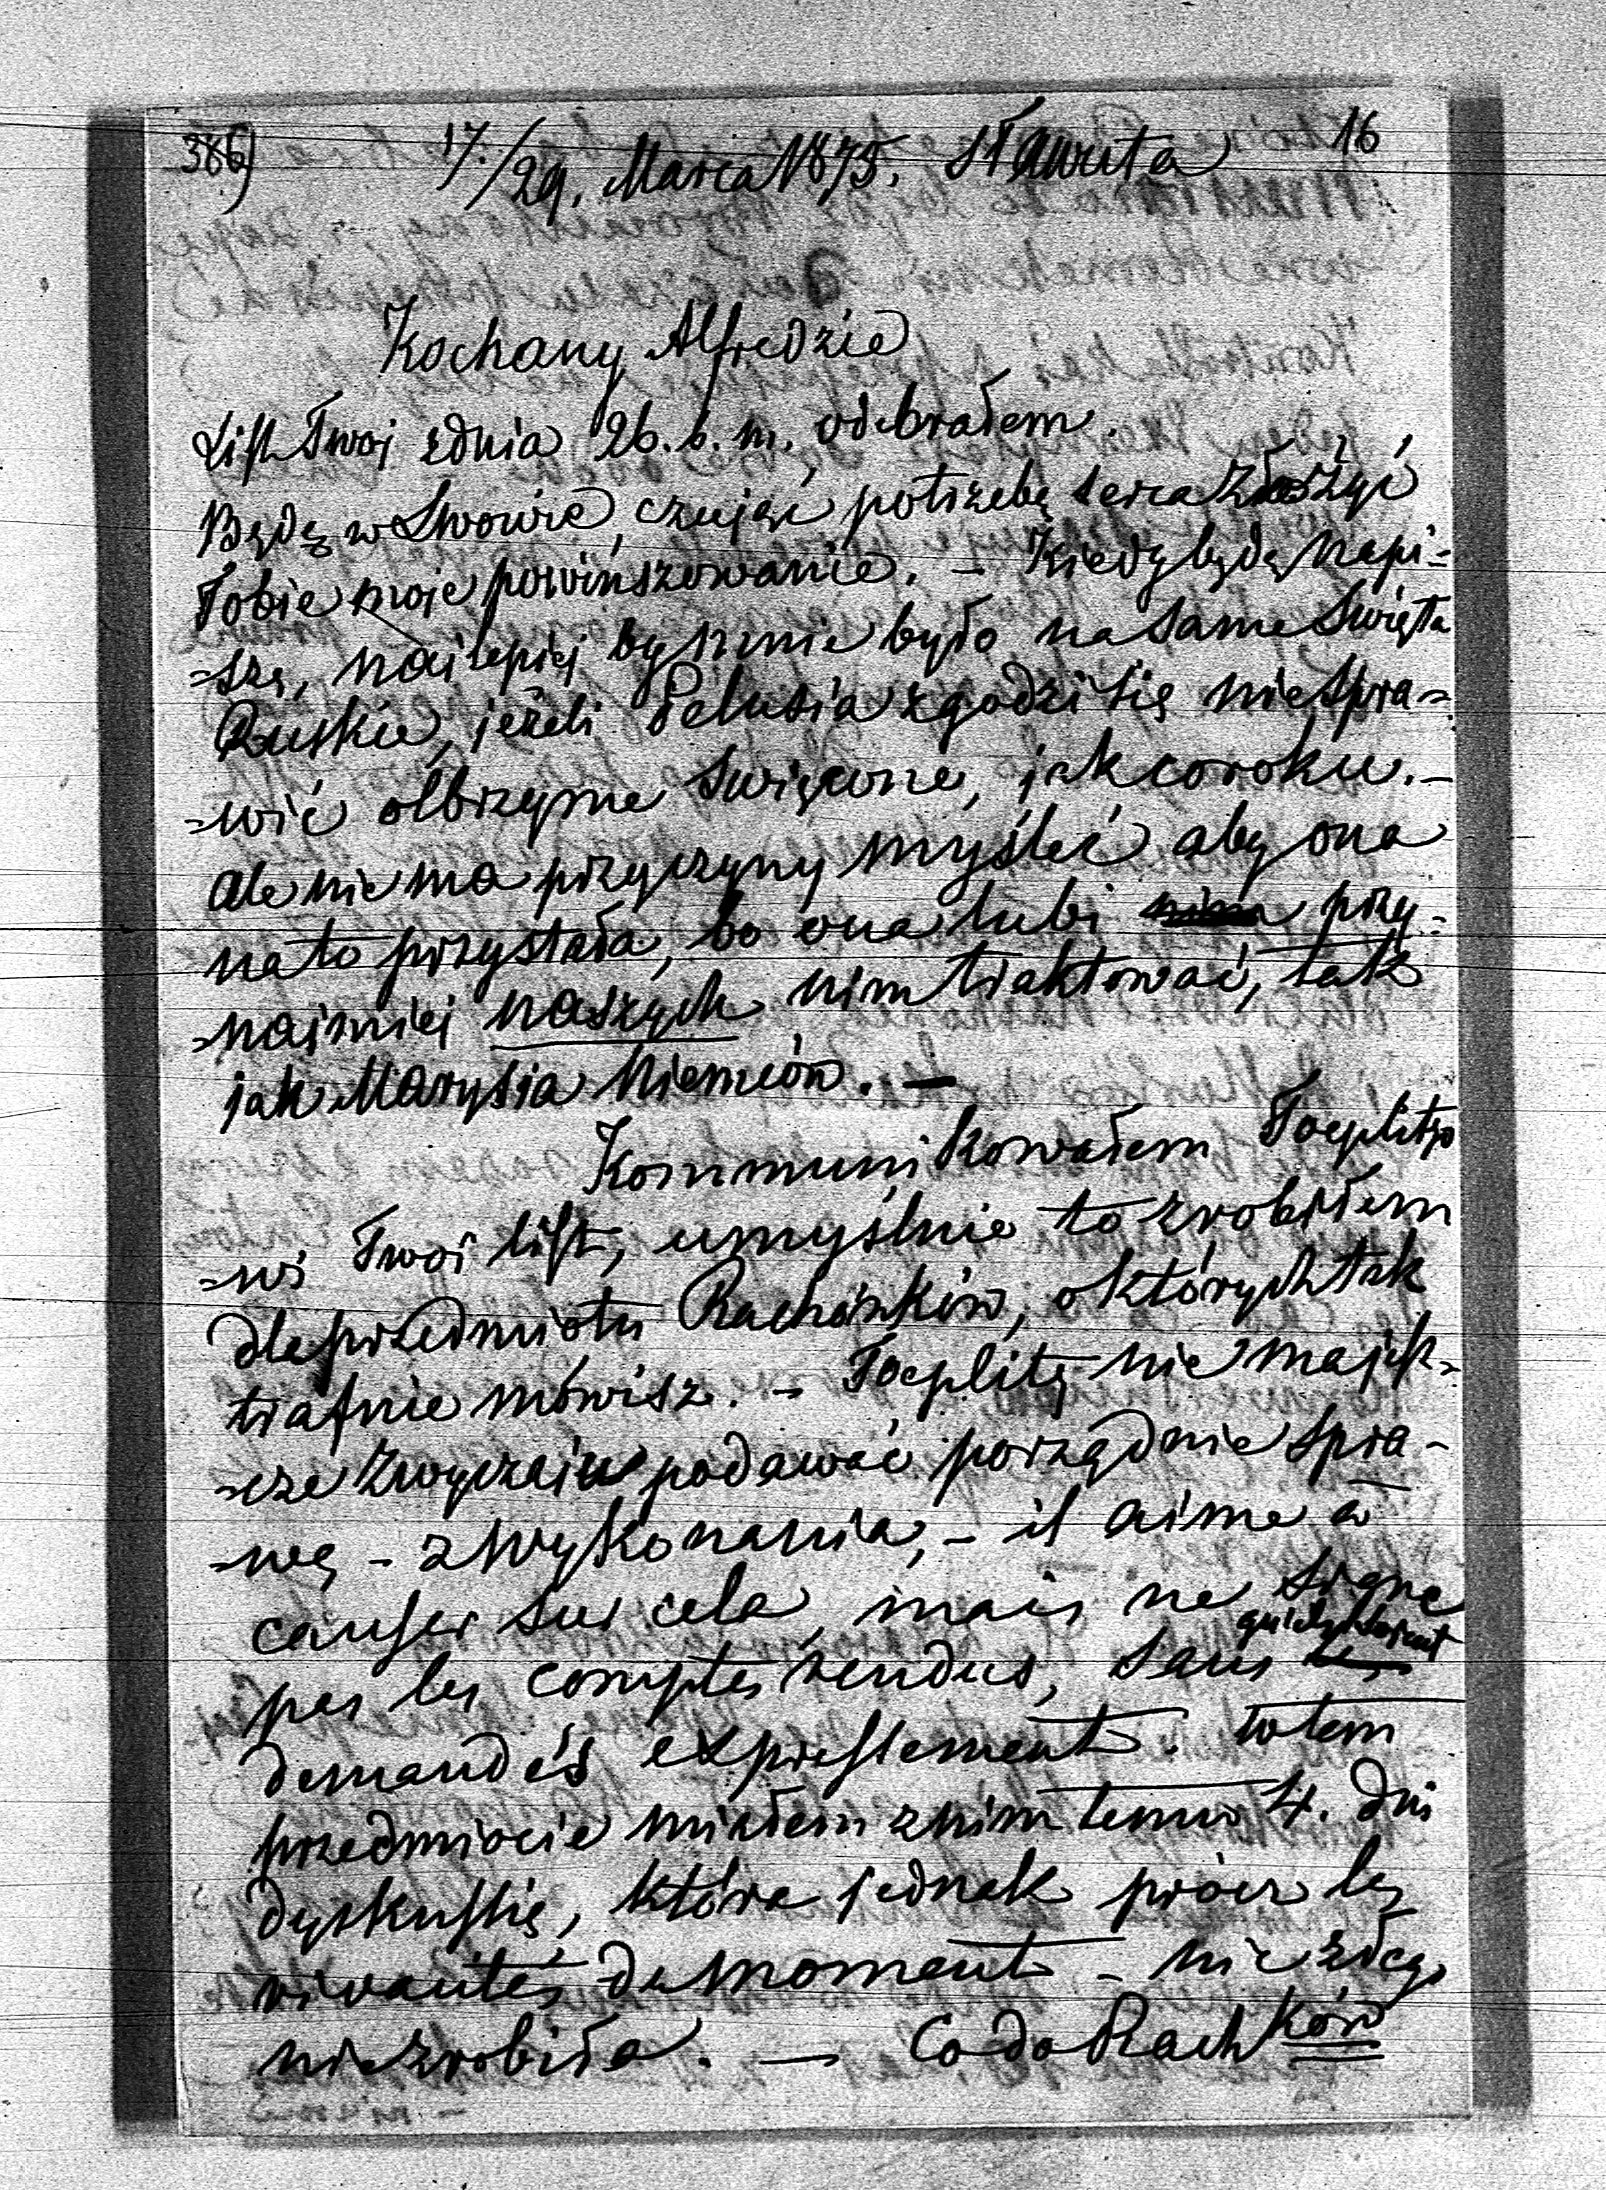 386) 17./29. Marca 1875. Sławuta 16
Kochany Alfredzie
List Twoj zdnia 26. b. m. odebrałem.
Będę w Lwowie, czując potrzebę serca złożyć
Tobie moje powinszowanie. – Kiedy będę, napi-
-szę, najlepiej by mnie było na same Święta
Ruskie, jeżeli Pelusia zgodzi się nie spra-
-wić olbrzyme święcone, jak co roku. –
ale nie ma przyczyny myśleć aby ona
na to przystała, bo ona lubi przy-
-najmiej naszych nim traktować, tak
jak Marysia Niemców. –
Kommunikowałem Toeplitzo
-wi Twoi list, umyślnie to zrobiłem
dla przedmiotu Rachónków, o których tak
trafnie mówisz. – Toeplitz nie ma jesz-
-cze zwyczaiu podawać porządnie spra-
-wę – z wykonania, – il aime à
causer sur cela, mais ne signe
pas les comptes rendus, sans qu'ils soient
demandés expressement. w tem
przedmiocie miałem z nim temu 4. dni
dyskussię, która jednak prócz les
vivautés du moment – nic złego
nie zrobiła. – Co do Rachków